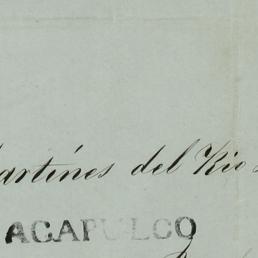 artínes del Rio
ACAPULCO